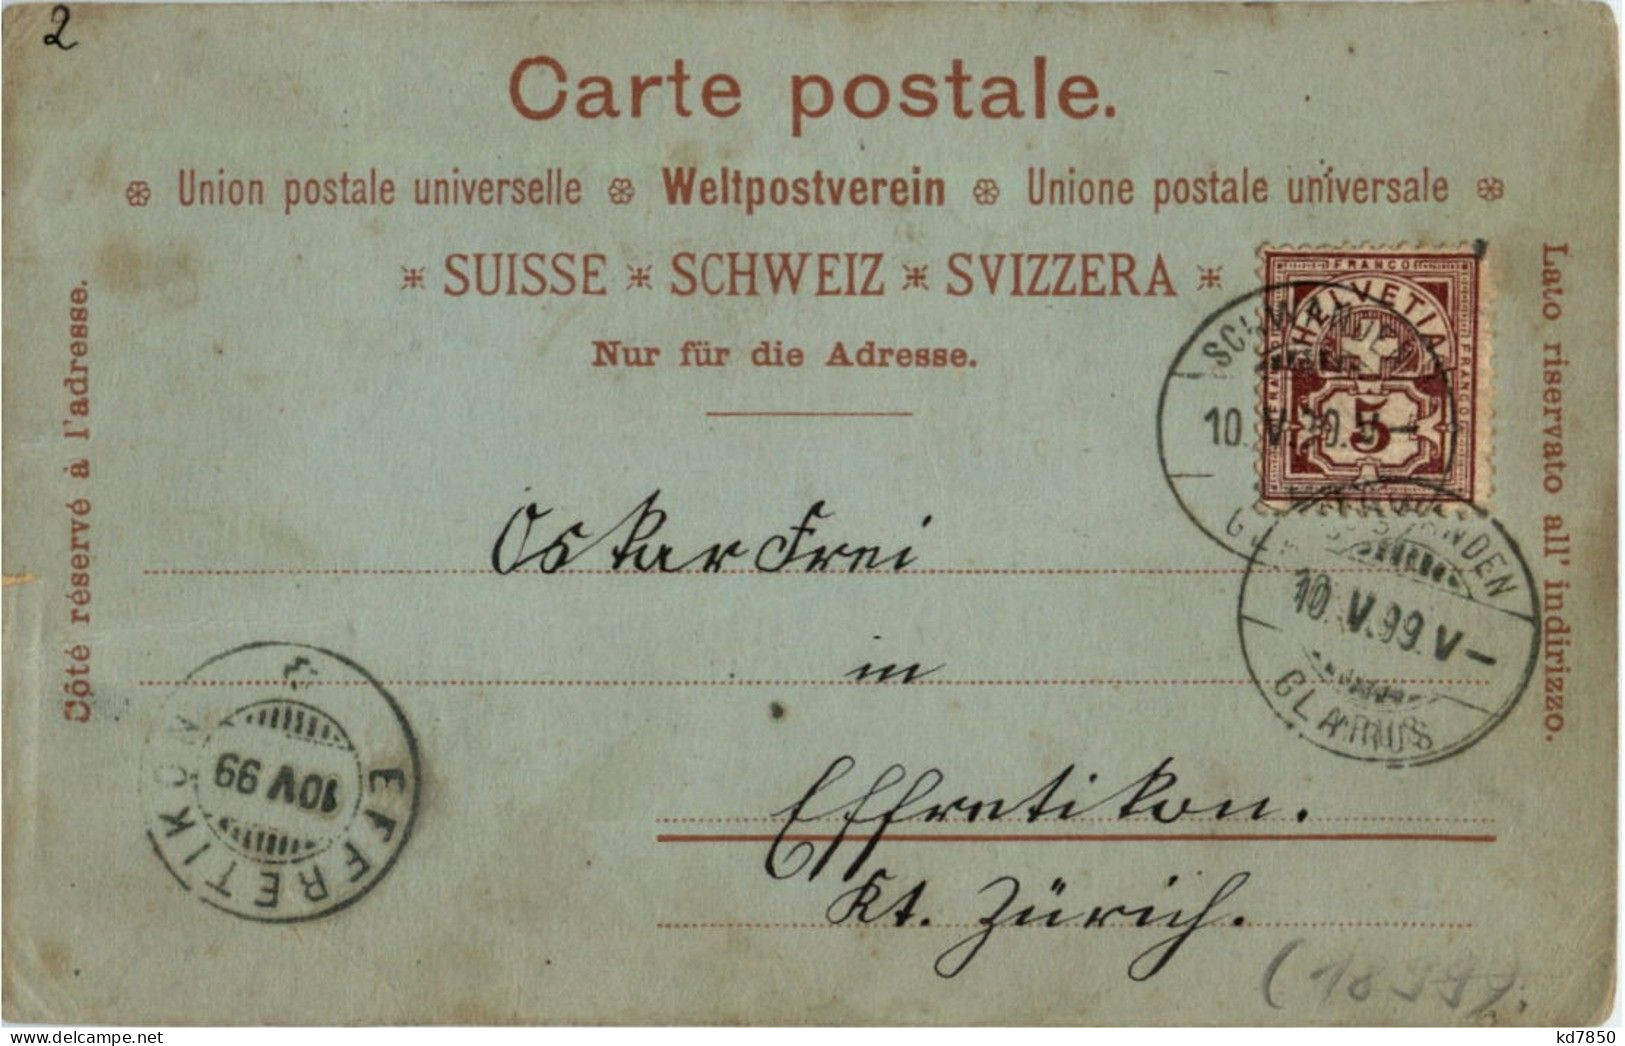 2
Carte postale.
Union postale universelle Weltpostverein Unione postale universale
SUISSE SCHWEIZ SVIZZERA
Nur für die Adresse.
Côté réservé à l'adresse.
Lato riservato all' indirizzo.
FRANCO
HELVETIA
FRANCO
5
SCHWANDEN
10. V.
GLARUS
10. V. 99. V—
Oskar Frei
in
Effretikon.
Kt. Zürich.
EFFRETIKON
10 V 99
(1899).
kd7850